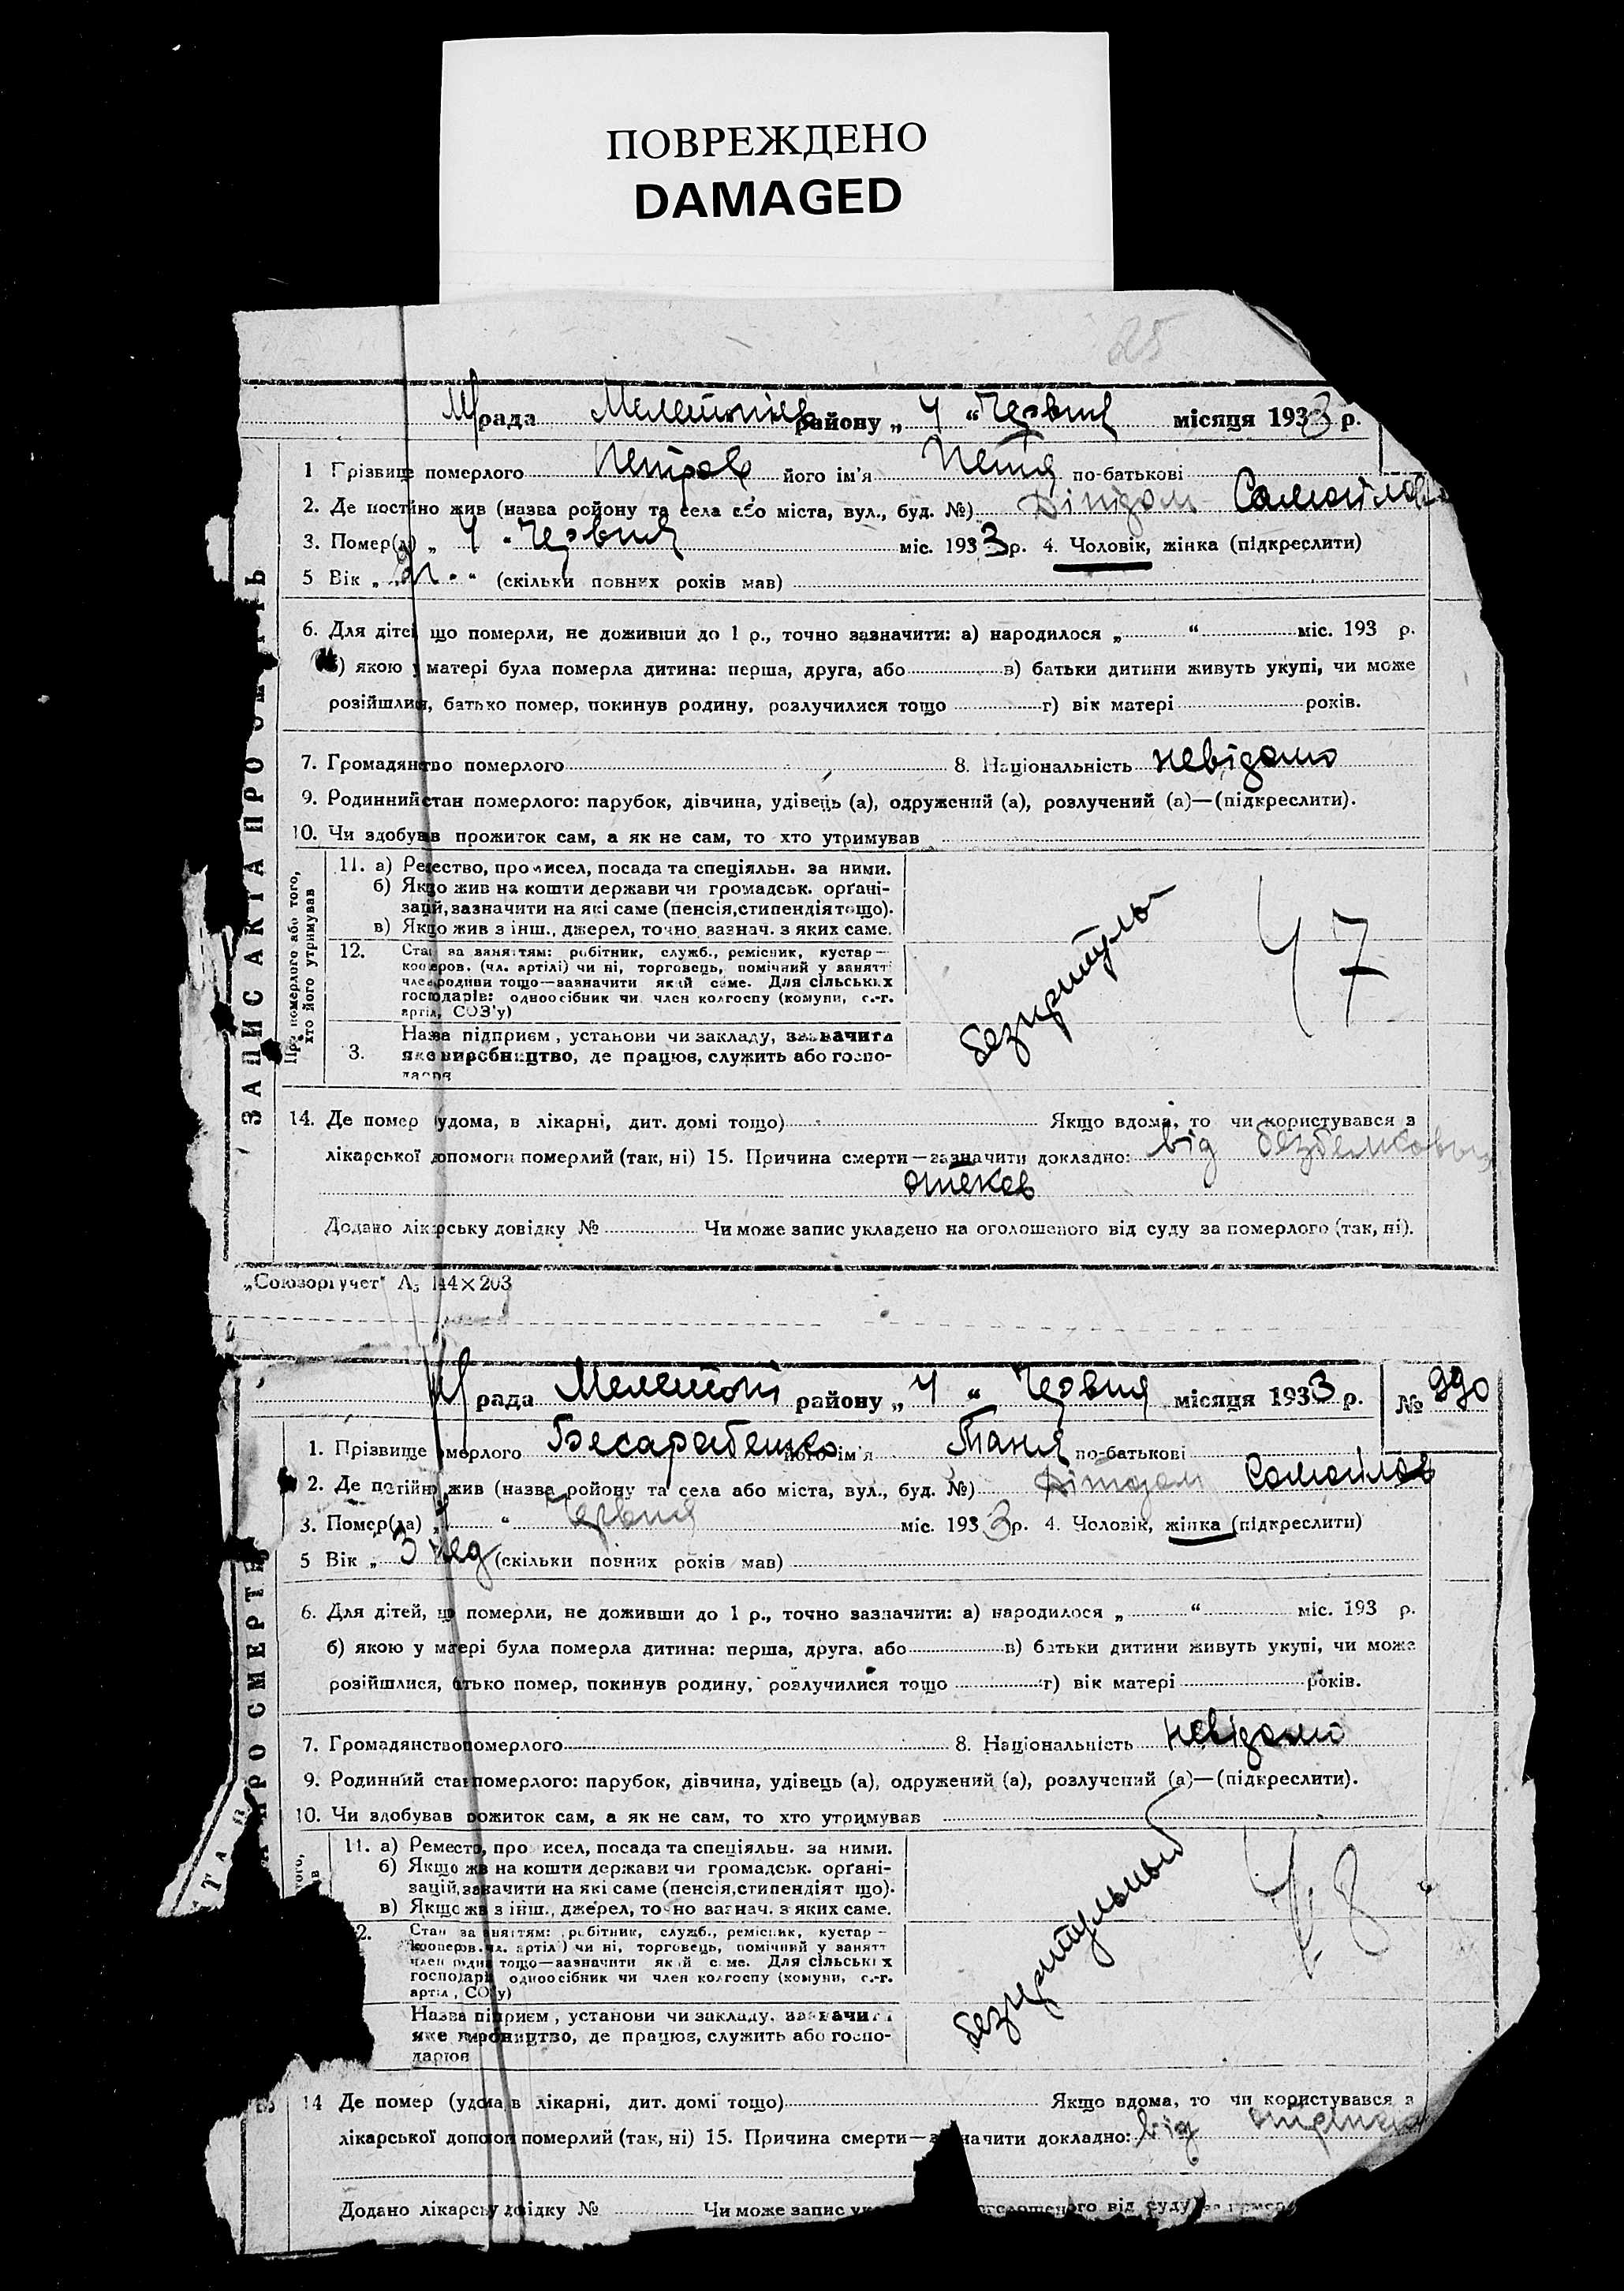 ПОВРЕЖДЕНО
DAMAGED
25
рада Мелетопів району „ 4 “ Червня місяця 1933 р.
1 Прізвище померлого Петров його ім'я Петя по-батькові
2. Де постійно жив (назва району та села або міста, вул., буд. №) Самойлов
3. Помер(ла) „ 4 “ Червня міс. 1933 р. 4. Чоловік, жінка (підкреслити)
5 Вік „ “ (скільки повних років мав)
6. Для дітей що померли, не доживши до 1 р., точно зазначити: а) народилося „ “ міс. 193 р.
б) якою у матері була померла дитина: перша, друга, або в) батьки дитини живуть укупі, чи може
розійшлися, батько помер, покинув родину, розлучилися тощо г) вік матері років.
7. Громадянство померлого 8. Національність невідомо
9. Родинний стан померлого: парубок, дівчина, удівець (а), одружений (а), розлучений (а)—(підкреслити).
10. Чи здобував прожиток сам, а як не сам, то хто утримував
ЗАПИС АКТА ПРО СМЕРТЬ
Про померлого або того,
хто його утримував
11. а) Ремество, промисел, посада та спеціяльн. за ними.
б) Якщо жив на кошти держави чи громадськ. орґані-
зацій, зазначити на які саме (пенсія, стипендія тощо).
в) Якщо жив з інш., джерел, точно зазнач. з яких саме.
12. Стан за заняттям: робітник, служб., ремісник, кустар—
кооперов. (чл. артілі) чи ні, торговець, помічний у занятт
член родини тощо—зазначити який саме. Для сільських
господарів: одноосібник чи член колгоспу (комуни, с.-г.
артіл, СОЗ'у)
3. Назва підприєм, установи чи закладу, зазначити
яке виробництво, де працює, служить або госпо-
дарює
безпритуль
47
14. Де помер (удома, в лікарні, дит. домі тощо) Якщо вдома, то чи користувався з
лікарської допомоги померлий (так, ні) 15. Причина смерти—зазначити докладно: від безбелковых
отеков
Додано лікарську довідку № Чи може запис укладено на оголошеного від суду за померлого (так, ні).
„Союзоргучет“ А5 144×203
рада Мелетопі району „ 4 “ Червня місяця 1933 р. № 990
1. Прізвище померлого Бесарабенко його ім'я Таня по-батькові
2. Де постійно жив (назва району та села або міста, вул., буд. №) Дітдом Самойлов
3. Помер(ла) „ 4 “ Червня міс. 1933 р. 4. Чоловік, жінка (підкреслити)
5 Вік „ 3 нед (скільки повних років мав)
6. Для дітей, що померли, не доживши до 1 р., точно зазначити: а) народилося „ “ міс. 193 р.
б) якою у матері була померла дитина: перша, друга, або в) батьки дитини живуть укупі, чи може
розійшлися, батько помер, покинув родину, розлучилися тощо г) вік матері років.
7. Громадянство померлого 8. Національність невідомо
9. Родинний стан померлого: парубок, дівчина, удівець (а), одружений (а), розлучений (а)—(підкреслити).
10. Чи здобував прожиток сам, а як не сам, то хто утримував
ПРО СМЕРТЬ
11. а) Ремество, промисел, посада та спеціяльн. за ними.
б) Якщо жив на кошти держави чи громадськ. орґані-
зацій, зазначити на які саме (пенсія, стипендія тощо).
в) Якщо жив з інш., джерел, точно зазнач. з яких саме.
2. Стан за заняттям: робітник, служб., ремісник, кустар—
кооперов. чл. артілі) чи ні, торговець, помічний у занятт
член родини тощо—зазначити який саме. Для сільських
господарів одноосібник чи член колгоспу (комуни, с.-г.
артіл, СОЗ'у)
Назва підприєм, установи чи закладу, зазначити
яке виробництво, де працює, служить або госпо-
дарює
безпритульный
48
14 Де помер (удома, в лікарні, дит. домі тощо) Якщо вдома, то чи користувався з
лікарської допомоги померлий (так, ні) 15. Причина смерти—зазначити докладно: від
Додано лікарську довідку № Чи може запис оголошеного від суду за